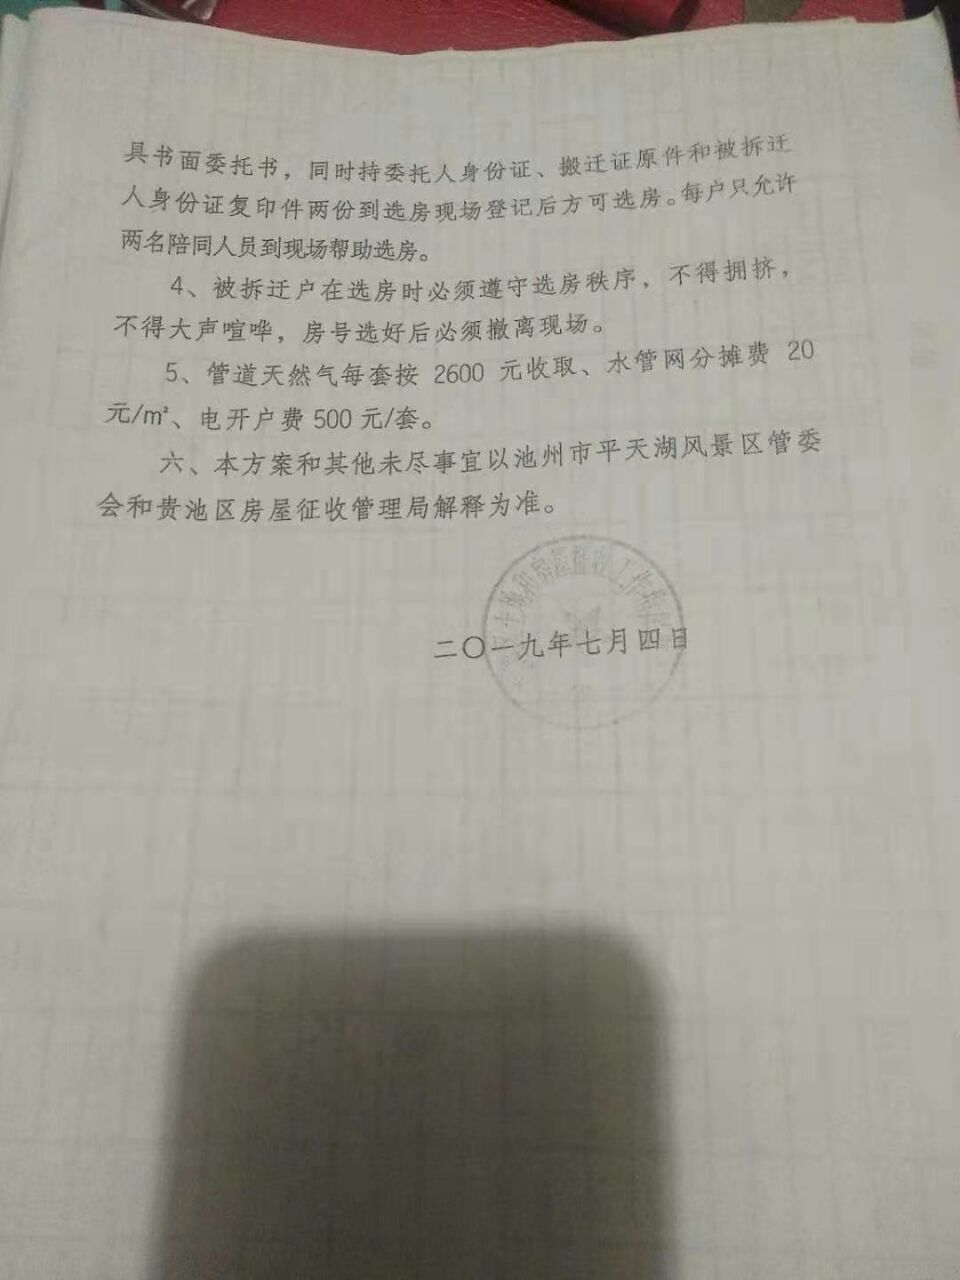 具书面委托书，同时持委托人身份证、搬迁证原件和被拆迁
人身份证复印件两份到选房现场登记后方可选房。每户只允许
两名陪同人员到现场帮助选房。
4、被拆迁户在选房时必须遵守选房秩序，不得拥挤，
不得大声喧哗，房号选好后必须撤离现场。
5、管道天然气每套按 2600 元收取、水管网分摊费 20
元/㎡、电开户费 500 元/套。
六、本方案和其他未尽事宜以池州市平天湖风景区管委
会和贵池区房屋征收管理局解释为准。
土地和房屋征收工作
二〇一九年七月四日